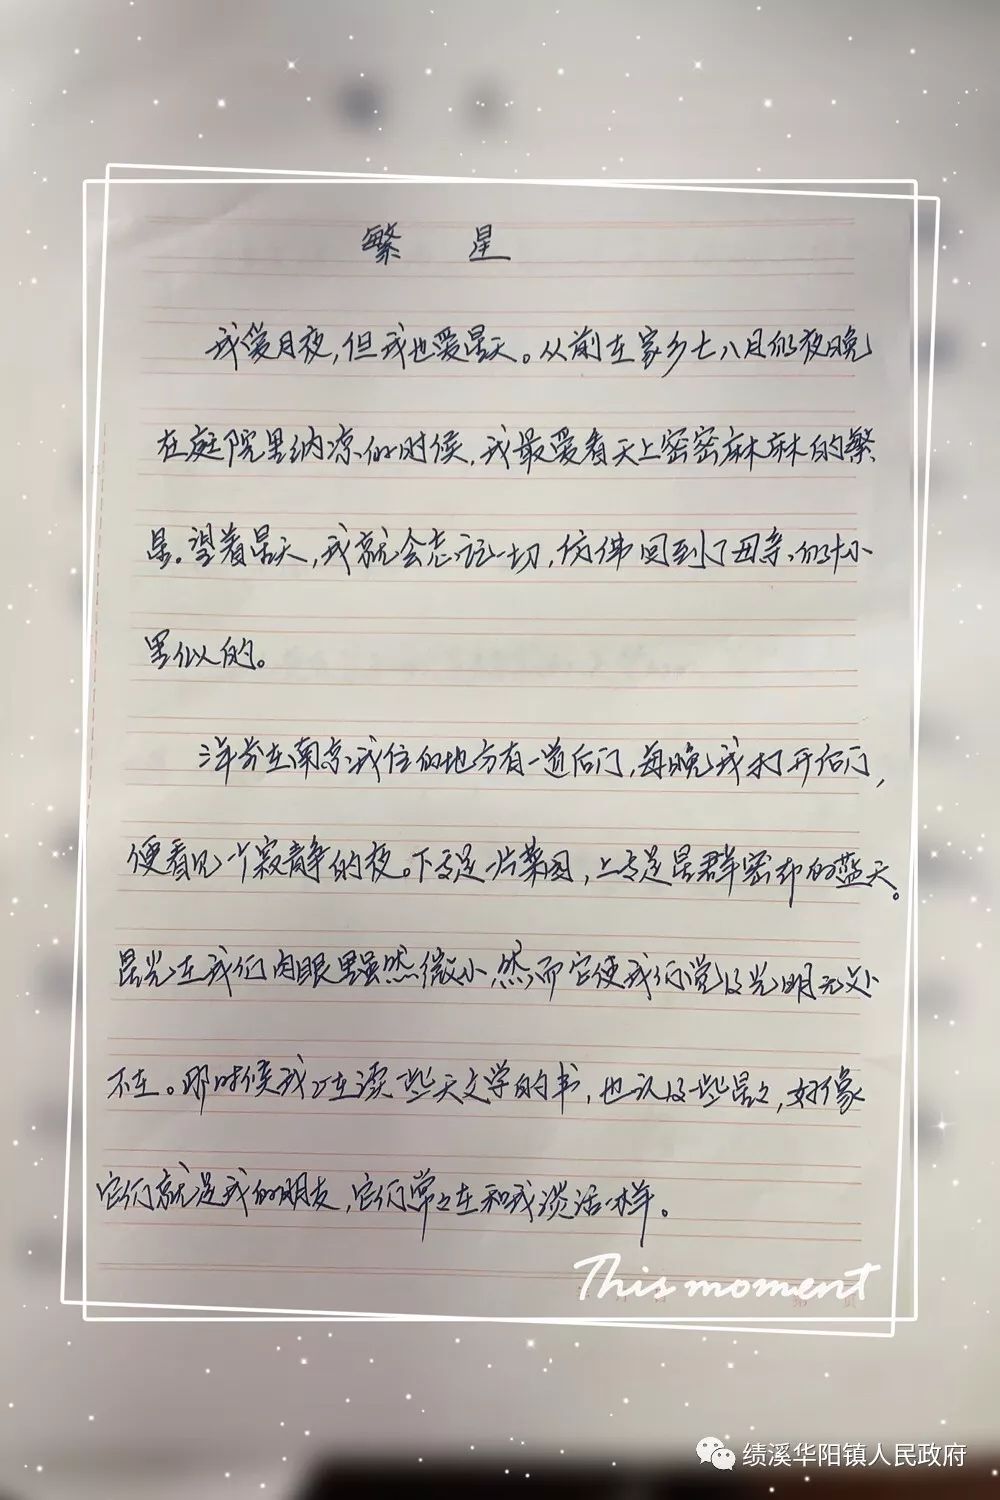 繁 星
我爱月夜，但我也爱星天。从前在家乡七八月的夜晚
在庭院里纳凉的时候，我最爱看天上密密麻麻的繁
星。望着星天，我就会忘记一切，仿佛回到了母亲的怀
里似的。
三年前在南京我住的地方有一道后门，每晚我打开后门，
便看见一个寂静的夜。下面是一片菜园，上面是星群密布的蓝天。
星光在我们肉眼里虽然微小，然而它使我们觉得光明无处
不在。那时候我正在读一些天文学的书，也认得一些星星，好像
它们就是我的朋友，它们常常在和我谈话一样。
This moment
第 页
绩溪华阳镇人民政府